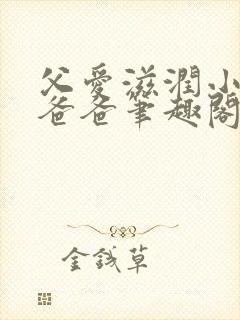 父愛滋潤小
爸爸筆趣閣
金錢草